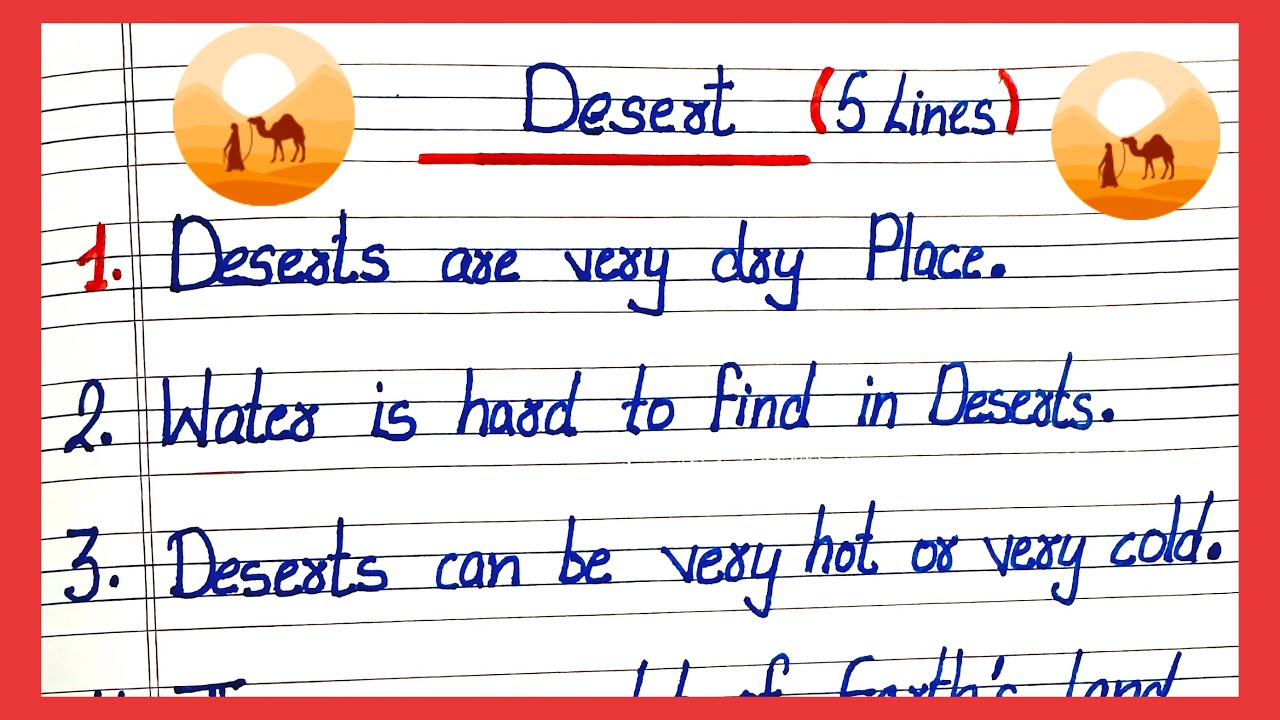 Desert (5 Lines)
1. Deserts are very dry Place.
2. Water is hard to find in Deserts.
3. Deserts can be very hot or very cold.
of Earth's land